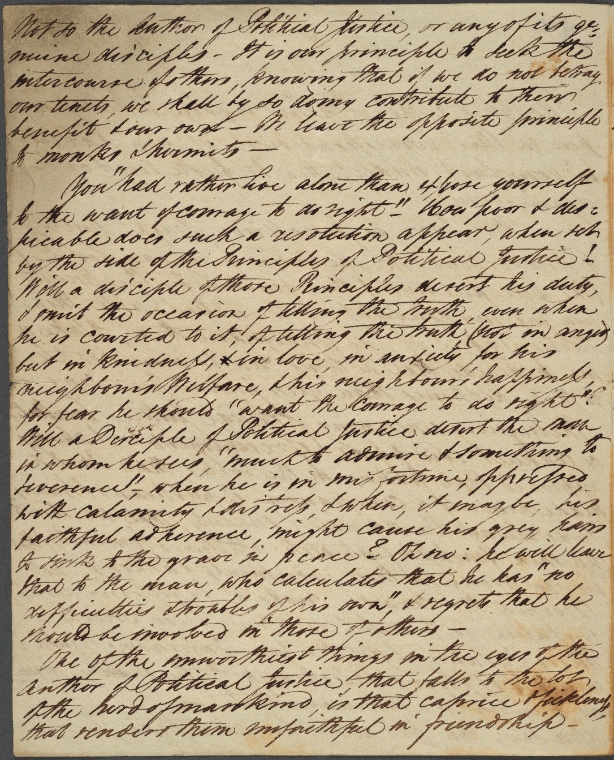 Not so the Author of Political Justice, or any of its ge=
nuine disciples – It is our principle to seek the
intercourse of others, knowing that if we do not betray
our tenets, we shall by so doing contribute to their
benefit & our own – We leave the opposite principle
to monks & hermits –
You "had rather live alone than expose yourself
to the want of courage to do right"! How poor & des=
picable does such a resolution appear, when set
by the side of the Principles of Political Justice!
Will a disciple of those Principles desert his duty,
& omit the occasion of telling the truth, even when
he is courted to it, of telling the truth, (not in anger,
but in kindness, & in love, in anxiety for his
neighbours Welfare, & his neighbour's happiness,
for fear he should "want the courage to do right"?
Will a Disciple of Political Justice desert the man
in whom he sees "much to admire & something to
reverence" – when he is in misfortune, oppressed
with calamity & distress, & when, it may be, his
faithful adherence might cause his grey hairs
to sink to the grave in peace? Oh no: he will leave
that to the man who calculates that he has "no
difficulties & troubles of his own", & regrets that he
should be involved in those of others –
One of the unworthiest things in the eyes of the
author of Political Justice that falls to the lot
of the herd of mankind, is that caprice & fickleness
that renders them unfaithful in friendship –